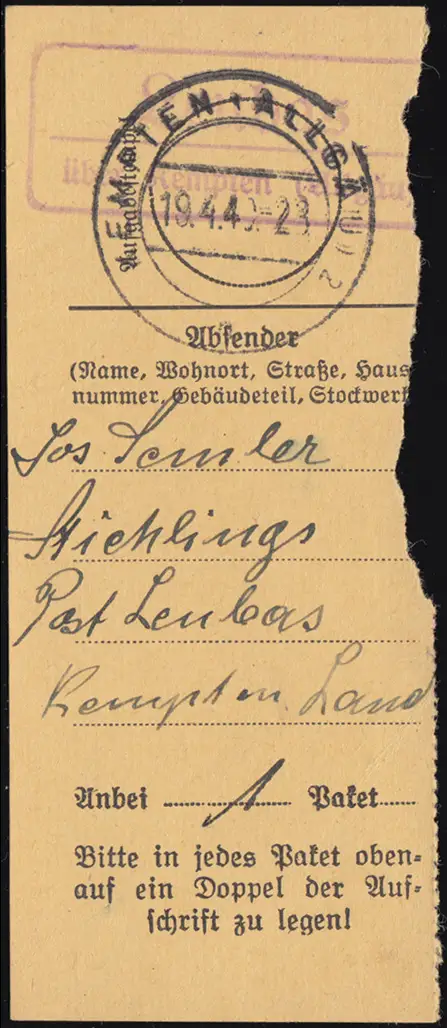 über Kempten (Allgäu)
KEMPTEN (ALLGÄU) 2
19.4.4 -23
Aufgabestempel
Absender
(Name, Wohnort, Straße, Haus
nummer, Gebäudeteil, Stockwerk
Jos Semler
Stichlings
Post Leubas
Kempten Land
Anbei 1 Paket
Bitte in jedes Paket oben-
auf ein Doppel der Auf-
schrift zu legen!